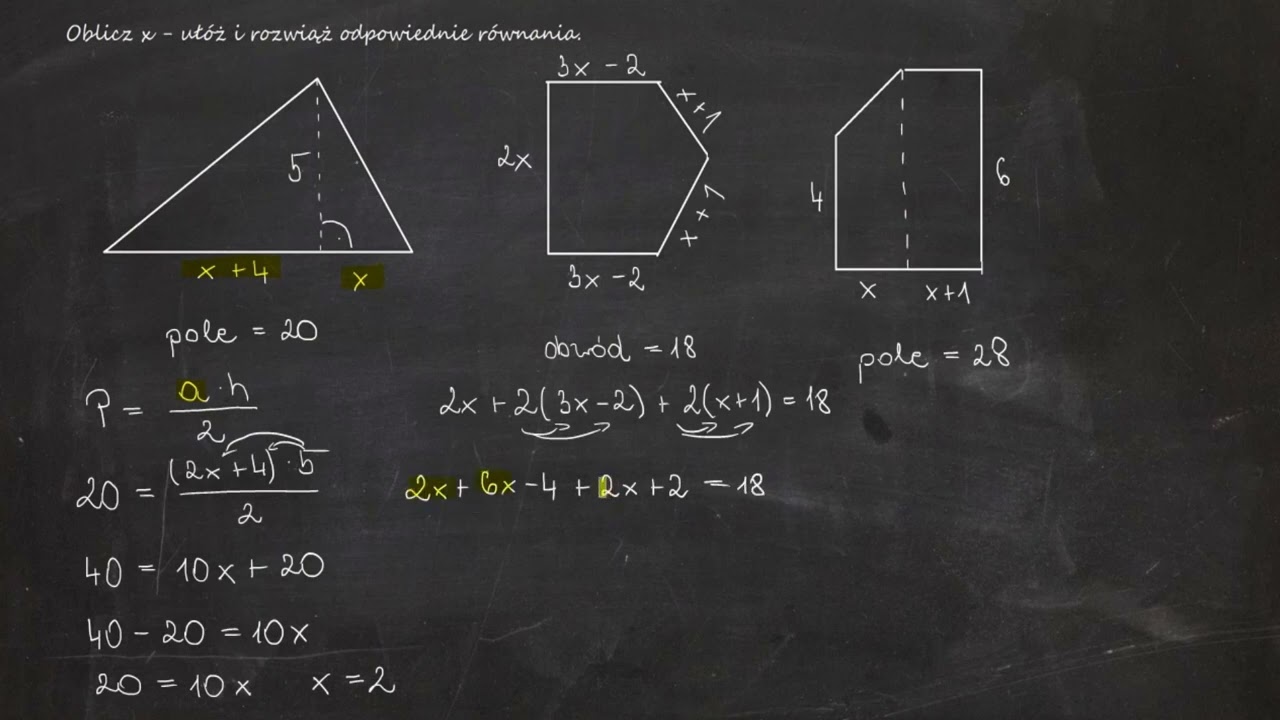 Oblicz x - ułóż i rozwiąż odpowiednie równania.
5
x + 4
x
pole = 20
P = a · h / 2
20 = (2x + 4) · 5 / 2
40 = 10x + 20
40 - 20 = 10x
20 = 10x x = 2
3x - 2
x + 1
2x
x + 1
3x - 2
obwód = 18
2x + 2(3x - 2) + 2(x + 1) = 18
2x + 6x - 4 + 2x + 2 = 18
4
6
x
x + 1
pole = 28